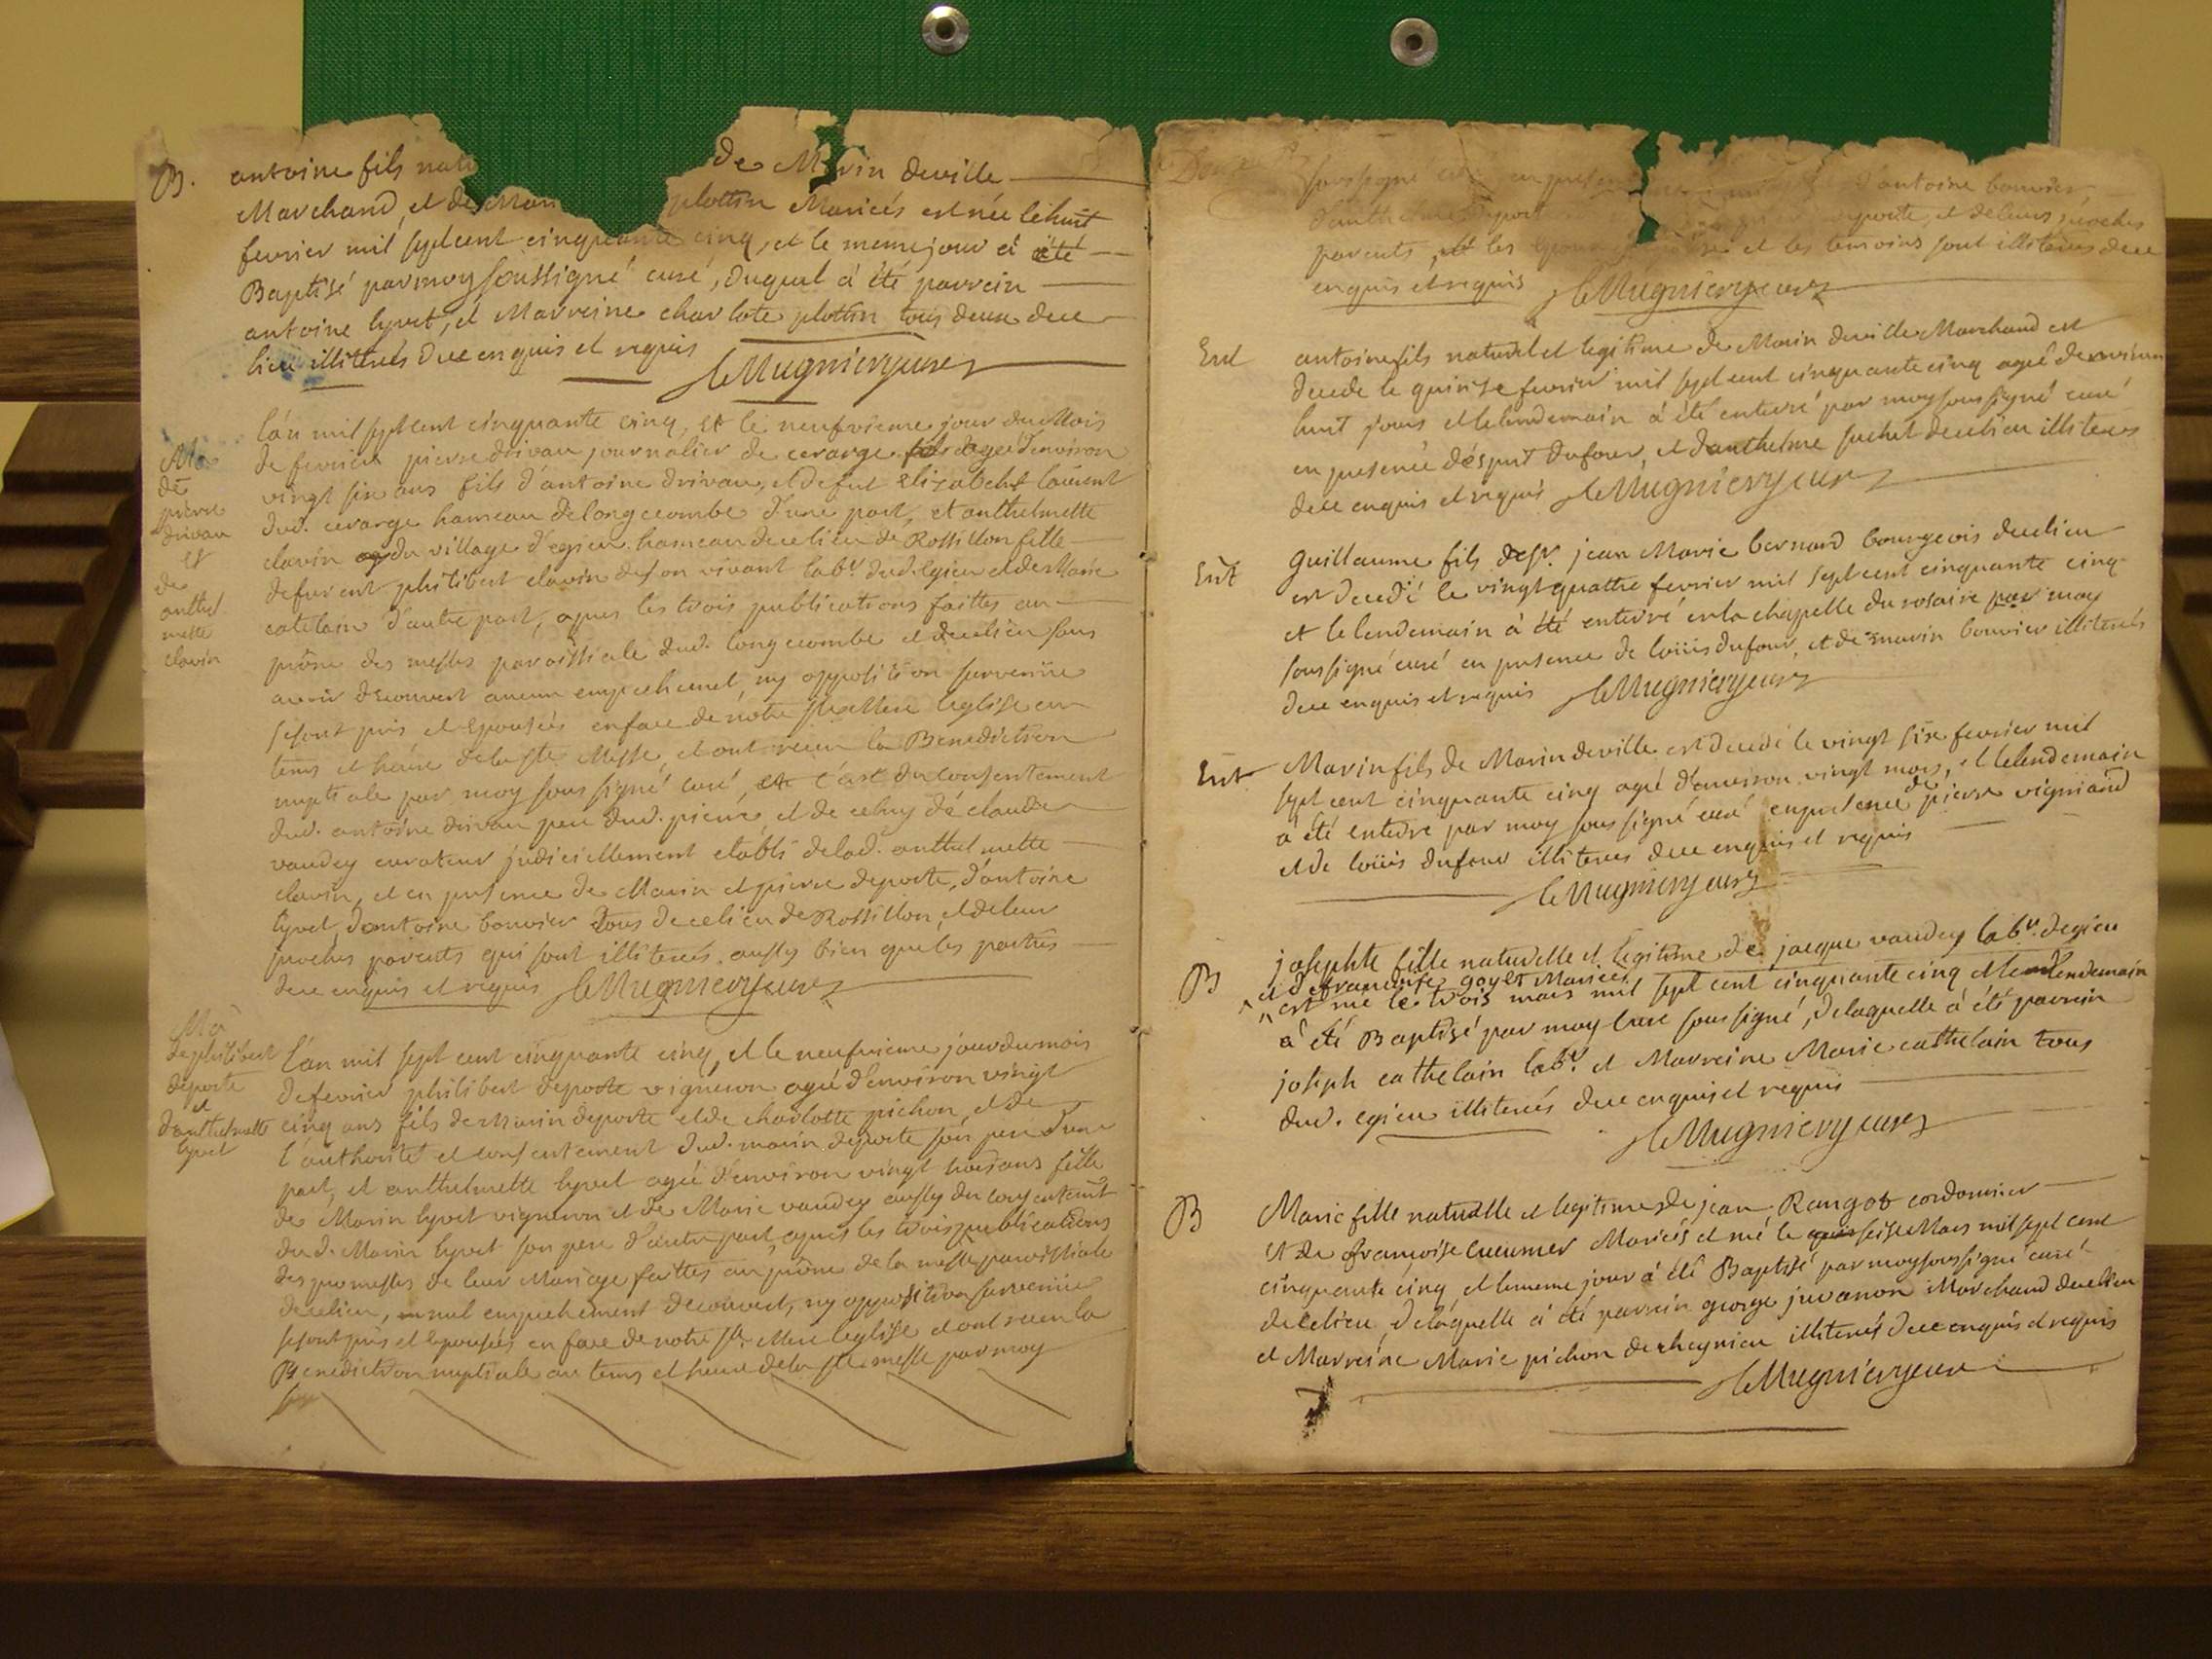 B. antoine fils natu de Marin deville
Marchand, et de Marie plottin Mariés est née le huit
fevrier mil sept cent cinquante cinq, et le meme jour à été
Baptisé par moy soussigné curé, duquel à été parrein
antoine lyvet, et Marreine charlote plottin tous deux de ce
lieu illiterés de ce enquis et requis
Mugnier curé
Ma
de
pierre
drivau
et
de
anthel
mette
clavin
l'an mil sept cent cinquante cinq, et le neufvieme jour du Mois
de fevrier pierre drivau journalier de cerarge agé d'environ
vingt six ans fils d'antoine drivau, et de fut Elizabeht laurent
dud. cerarge hameau de longecombe d'une part, et anthelmette
clavin du village d'egieu hameau de ce lieu de Rossillon fille
de furent philibert clavin de son vivant labr. dud. Egieu et de Marie
catelain d'autre part, apres les trois publications faittes au
prône des messes paroissiale dud. longecombe et de ce lieu sans
avoir decouvert aucun empechement, ny opposition survenüe
se sont pris et Epousées en face de notre ste Mere l'eglise au
tems et heure de la ste Messe, et ont receu la Benediction
nuptiale par moy soussigné curé, c'est du consentement
dud. antoine drivau pere dud. pierre, et de celuy de claude
vaudey curateur judiciellement etabli de lad. anthelmette
clavin, et en presence de Marin et pierre deporte, d'antoine
lyvet, d'antoine bouvier tous de ce lieu de Rossillon, et de leur
proches parents qui sont illiterés, aussy bien que les parties
de ce enquis et requis Mugnier curé
Ma
de philibert
deporte
et
d'anthelmette
lyvet
l'an mil sept cent cinquante cinq, et le neufvieme jour du mois
de fevrier philibert deporte vigneron agé d'environ vingt
cinq ans fils de Marin deporte et de charlotte pichon, et de
l'authorité et consentement dud. marin deporte son pere d'une
part, et anthelmette lyvet agée d'environ vingt trois ans fille
de Marin lyvet vigneron et de Marie vaudey aussy du consentemt
dud. Marin lyvet son pere d'autre part, apres les trois publications
des promesses de leur Mariage faittes au prône de la messe paroissiale
de ce lieu, nul empechement decouvert, ny opposition survenüe
se sont pris et epousées en face de notre ste Mere l'eglise et ont receu la
Benediction nuptiale au tems et heure de la ste messe par moy
soussigné en presen d'antoine bouvier,
deporte, et de leurs proches
parents, les et les temoins sont illiterés de ce
enquis et requis Mugnier curé
Ent antoine fils naturel et legitime de Marin deville Marchand est
decedé le quinse fevrier mil sept cent cinquante cinq agé d'environ
huit jours et le lendemain à été enterré par moy soussigné curé
en presence d'esprit dufour, et d'anthelme suchet de ce lieu illiteres
de ce enquis et requis Mugnier curé
Ent Guillaume fils de sr. jean Marie bernard bourgeois de ce lieu
est decedé le vingt quattre fevrier mil sept cent cinquante cinq
et le lendemain à été enterré en la chapelle du rosaire par moy
soussigné curé en presence de loüis dufour, et de marin bouvier illiterés
de ce enquis et requis Mugnier curé
Ent Marin fils de Marin deville est decedé le vingt sixe fevrier mil
sept cent cinquante cinq agé d'environ vingt mois, et le lendemain
à été enterre par moy soussigné curé en presence de pierre vigniand
et de loüis dufour illiteres de ce enquis et requis
Mugnier curé
B josephte fille naturelle et legitime de jacque vaudey labr. d'egieu
et de francoise goyet Mariés
est née le trois mars mil sept cent cinquante cinq et le lendemain
à été Baptisé par moy curé soussigné, de laquelle à été parrein
joseph cathelain labr. et Marreine Marie cathelain tous
dud. egieu illiterés de ce enquis et requis
Mugnier curé
B Marie fille naturelle et legitime de jean Rangot cordonnier
et de francoise cucumer Mariés et né le seise Mars mil sept cent
cinquante cinq et le meme jour à été Baptisé par moy soussigné curé
de ce lieu, de laquelle à été parrein george juvanon Marchand de ce lieu
et Marreine Marie pichon de cheignieu illiterés de ce enquis et requis
Mugnier curé